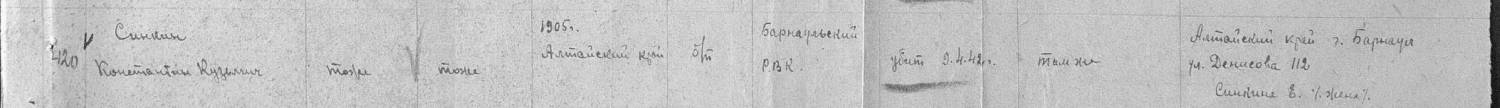 420
Синкин
Константин Кузьмич
тоже
тоже
1905г.
Алтайский край
б/п
Барнаульский
РВК
убит 9.4.42г.
там же
Алтайский край г. Барнаул
ул. Денисова 112
Синкина Е. /жена/.